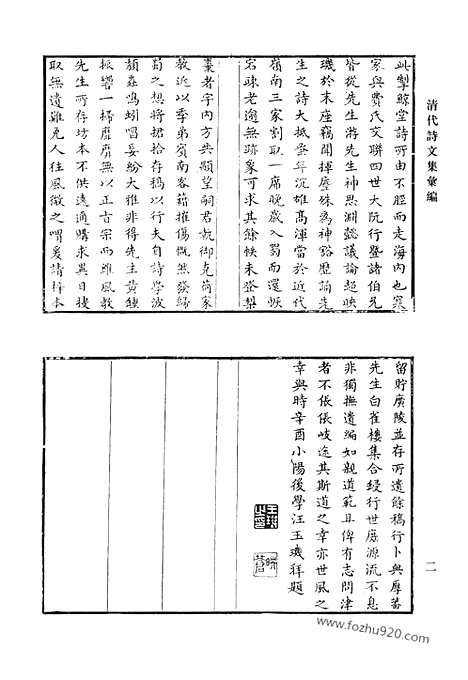 清代詩文集彙編
此掣鯨堂詩所由不脛而走海內也寒
家與費氏文聯四世大阮行暨諸伯兄
皆從先生游先生神思淵懿議論超映
璣於末座竊聞揮麈殊為神豁歷論先
生之詩大抵壑年沉雄高渾當於近代
嶺南三家割取一席晚歲入蜀而還帙
宕疎老適無跡象可求其餘帙未登梨
棗者宇內方共顒望嗣君執御克荷家
教近以季弟賓南客籍摧傷慨然發歸
蜀之想將捃拾存稿以行夫自詩學波
頹蟲鳴蚓唱妄紛大雅非得先生黃鍾
振響一掃靡靡無以正古宗而維風教
先生所存坊本不供遠通購求異日搜
取無遺難免人往風微之喟爰請梓本
留貯廣陵並存所遺餘稿行卜與厚蕃
先生白雀樓集合鋟行世庶源流不息
非獨撫遺編如親道範且俾有志問津
者不倀倀岐途其斯道之幸亦世風之
幸與時辛酉小陽後學汪玉璣拜題
二
www.fozhu920.com